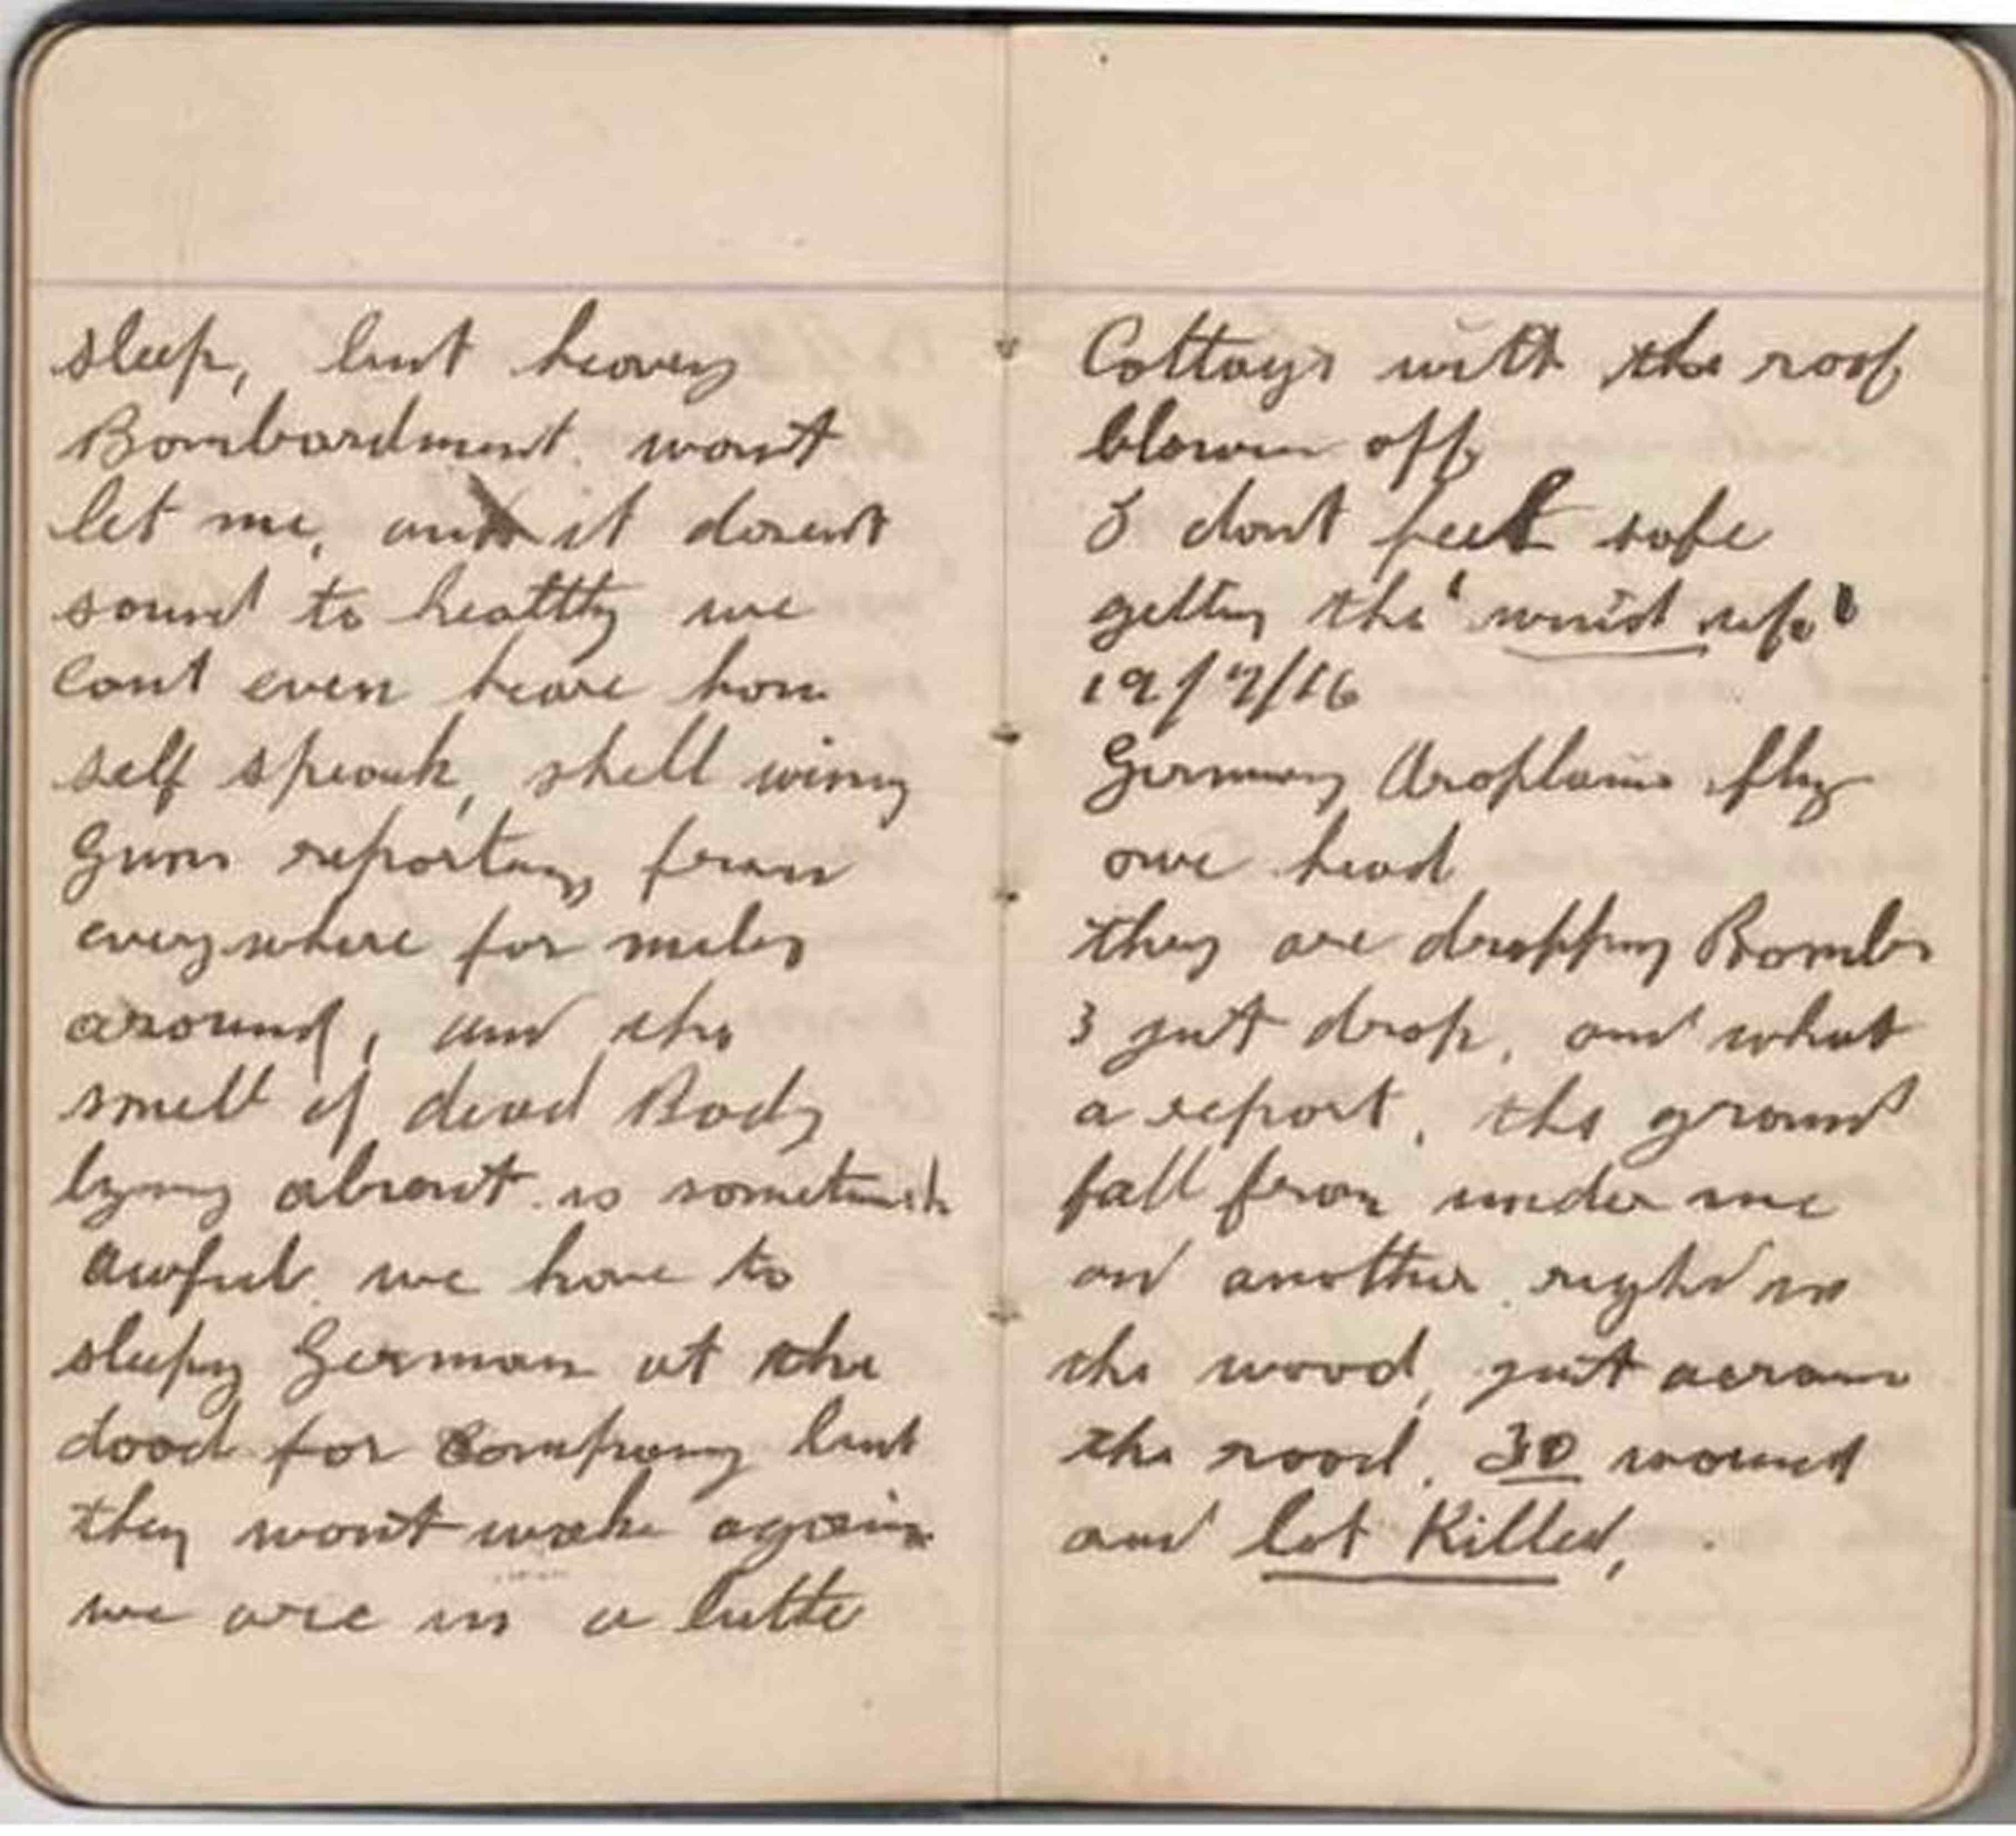 sleep, but heavey
Bombardment wont
let me, and it dosent
sound to healtthy we
cant even heare hour
self speak, shell wining
Guns reporting from
everywhere for miles
around, and the
smell of dead Body
lying about is sometimes
awful. we have to
sleping German at the
dood for Company but
they wont wake again
we are in a little
Cottage with the roof
blown off
I dont feel safe
getting the 'wind up.'
19/7/16
Germany Aroplains fly
ove head
they are dropping Bombs
3 just drop, and what
a report, the ground
fall from under me
and another right in
the wood, just across
the road. 30 wound
and lot Killed,